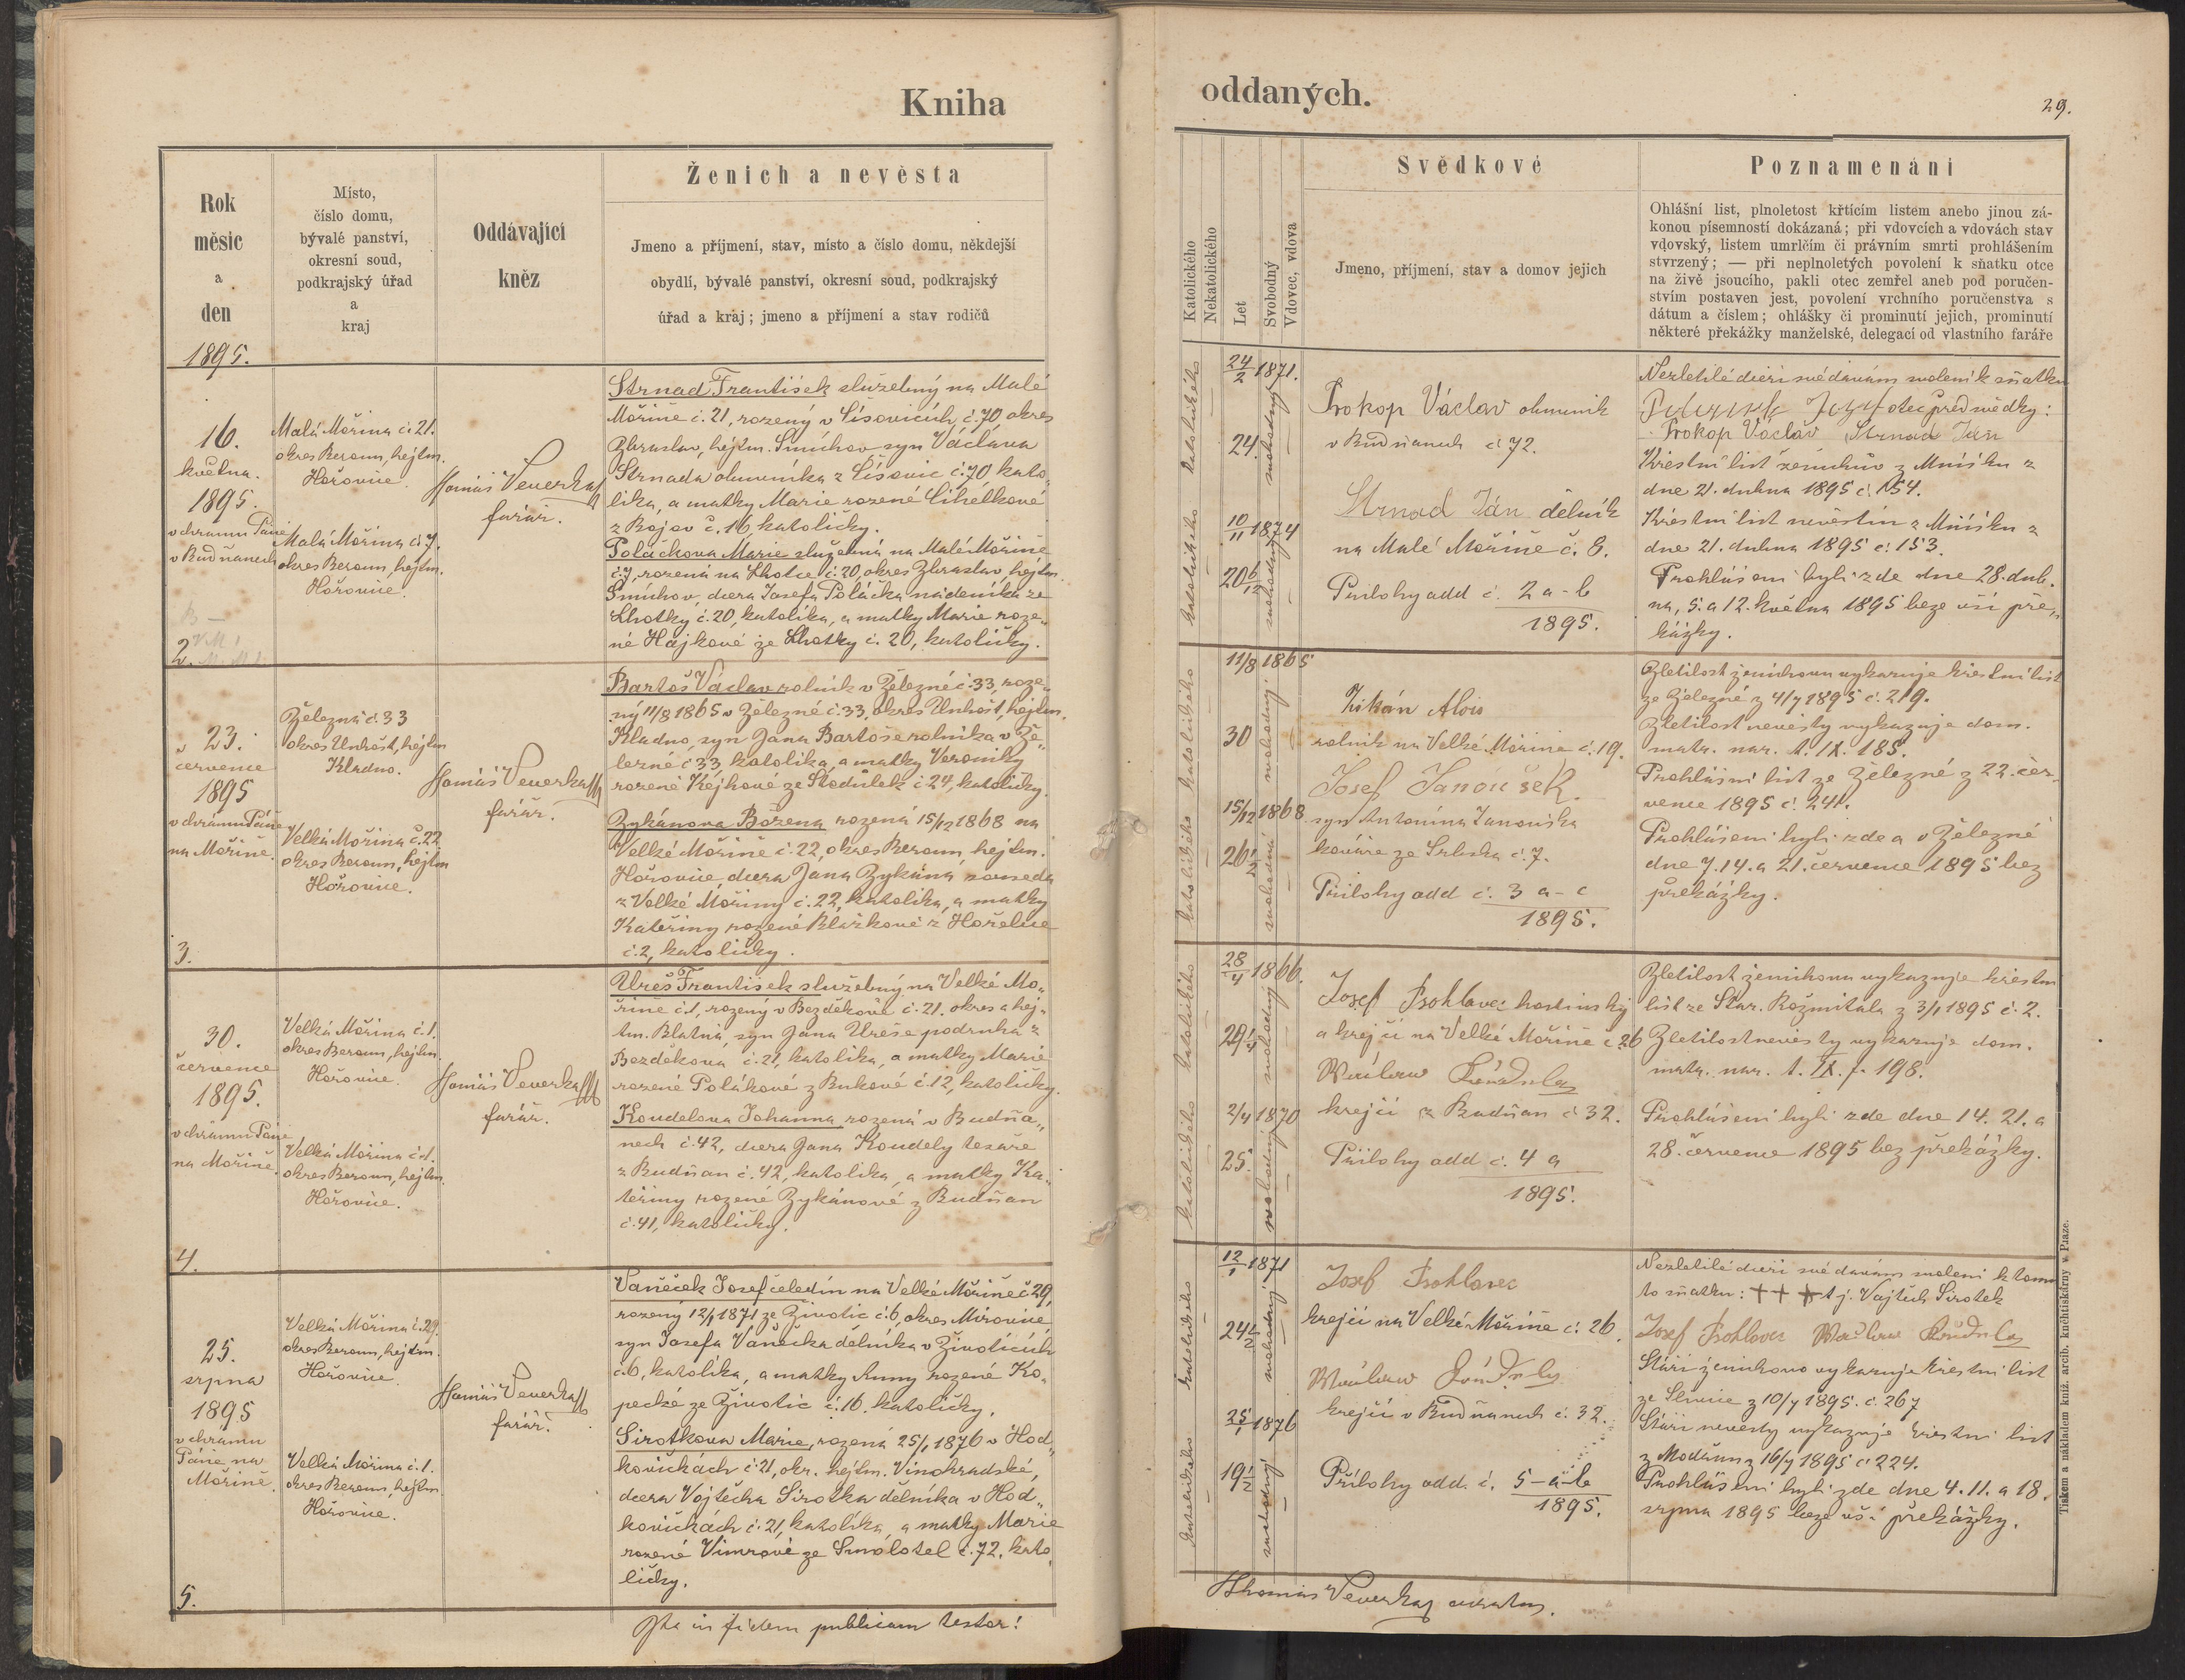 Kniha
Rok
měsíc
a
den
Místo,
číslo domu,
bývalé panství,
okresní soud,
podkrajský úřad
a
kraj
Oddávající
kněz
Ženich a nevěsta
Jmeno a příjmení, stav, místo a číslo domu, někdejší
obydlí, bývalé panství, okresní soud, podkrajský
úřad a kraj; jmeno a příjmení a stav rodičů
1895.
16.
května.
1895.
v chrámu Páně
v Budňanech
2.
Malá Mořina č. 21.
okres Beroun, hejtm.
Hořovice.
Malá Mořina č. 7.
okres Beroun, hejtm.
Hořovice.
Tomáš Veverka
farář.
Strnad František služebný na Malé
Mořině č. 21, rozený v Líšovicích, č. 70, okres
Zbraslav, hejtm. Smíchov syn Václava
Strnada oh z Líšovic č. 70, kato„
líka, a matky Marie rozené Cihelkové
z Bojov č. 16 katoličky.
Poláčkova Marie služebná na Malé Mořině
č. 7, rozená na Lhotce č. 20, okres Zbraslav, hejtm.
Smíchov, dcera Josefa Poláčka nádeníka ze
Lhotky č. 20, katolíka, a matky Marie roze„
né Hájkové ze Lhotky č. 20, katoličky.
23.
července
1895
v chrámu Páně
na Mořině.
3.
Železná č. 33
okres Unhošť, hejtm
Kladno.
Velká Mořina č. 22
okres Beroun, hejtm
Hořovice.
Tomáš Veverka
farář.
Bartoš Václav rolník v Železné č. 33, roze„
ný 11/8 1865 v Železné č. 33, okres Unhošť, hejtm.
Kladno, syn Jana Bartoše rolníka v Že„
lezné č 33 katolíka, a matky Veroniky
rozené Kejhové ze Stodůlek č 24, katoličky.
Zykánova Božena rozená 15/12 1868 na
Velké Mořině č. 22, okres Beroun, hejtm.
Hořovice, dcera Jana Zykána, souseda
z Velké Mořiny č. 22, katolíka, a matky
Kateřiny rozené Blažkové z Hořelice
č. 2, katoličky.
30.
července
1895.
v chrámu Páně
na Mořině.
4.
Velká Mořina č. 1.
okres Beroun, hejtm.
Hořovice.
Velká Mořina č. 1.
okres Beroun, hejtm.
Hořovice.
Tomáš Veverka
farář.
Ureš František služebný na Velké Mo„
řině č. 1, rozený v Bezděkově č. 21. okres a hej„
tm. Blatná, syn Jana Ureše podruha z
Bezděkova č. 21, katolíka, a matky Marie
rozené Polákové z Bukové č. 12, katoličky.
Koudelova Johanna rozená v Budňa„
nech č. 42, dcera Jana Koudely tesaře
z Budňan č. 42, katolíka, a matky Ka„
teřiny rozené Zykánové z Budňan
č. 41, katoličky.
25.
srpna
1895
v chrámu
Páně na
Mořině.
5.
Velká Mořina č. 29.
okres Beroun, hejtm.
Hořovice.
Velká Mořina č. 1.
okres Beroun, hejtm
Hořovice.
Tomáš Veverka
farář.
Vaněček Josef čeledín na Velké Mořině č 29,
rozený 12/1 1871 ze Životic č. 6, okres Mirovice
syn Josefa Vaněčka dělníka v Životicích
č. 6, katolíka, a matky Anny rozené Ko„
pecké ze Životic č. 16. katoličky.
Sirotkova Marie, rozená 25/1 1876 v Hod„
kovičkách č. 21, okr. hejtm. Vinohradské,
dcera Vojtěcha Sirotka dělníka v Hod„
kovičkách č. 21, katolíka, a matky Marie
rozené Vimrové ze Smolotel č. 72. kato„
ličky.
Ita in fidem publicam testor!
oddaných.
29.
Katolického
Nekatolického
Let
Svobodný
Vdovec, vdova
Svědkové
Jmeno, příjmení, stav a domov jejich
Poznamenání
Ohlášní list, plnoletost křtícím listem anebo jinou zá-
konou písemností dokázaná; při vdovcích a vdovách stav
vdovský, listem umrlčím či právním smrti prohlášením
stvrzený; — při neplnoletých povolení k sňatku otce
na živě jsoucího, pakli otec zemřel aneb pod poručen-
stvím postaven jest, povolení vrchního poručenstva s
dátum a číslem; ohlášky či prominutí jejich, prominutí
některé překážky manželské, delegací od vlastního faráře
katolického
24/2 1871.
24.
svobodný
katolického
10/11 1874
20 6/12
svobodná
Prokop Václav
v Budňanech č 72.
Strnad Ján dělník
na Malé Mořině č. 8.
Přílohy add č. 2 a-b
1895.
Nezletilé dceři své dávám svolení k sňatku
Josef otec před svědky:
Prokop Václav Strnad Ján
Křestní list ženichův z Mníšku z
dne 21. dubna 1895 č. 154.
Křestní list nevěstin z Mníšku z
dne 21. dubna 1895 č. 153.
Prohlášení byli zde dne 28. dub„
na, 5. a 12. května 1895 beze vší pře„
kážky.
katolického
11/8 1865
30
svobodný.
katolického
15/12 1868
26 1/2
svobodná
Zikán Alois
rolník na Velké Mořině č. 19.
Josef Janoušek.
syn Antonína Janouška
kováře ze Srbska č. 7.
Přílohy add č. 3 a-c
1895.
Zletilost ženichovu vykazuje křestní list
ze Železné z 4/7 1895 č. 219.
Zletilost nevěsty vykazuje dom.
matr. nar. t. IX. 185.
Prohlášní list ze Železné z 22. čer„
vence 1895 č. 241.
Prohlášeni byli zde a v Železné
dne 7. 14. a 21. července 1895 bez
překážky.
katolického
28/4 1866.
29 1/4
svobodný
katolického
2/4 1870
25.
svobodná
Josef Psohlavec hostinský
a krejčí na Velké Mořině č 26
Václav Koudela
krejčí z Budňan č 32.
Přílohy add č. 4 a
1895.
Zletilost ženichovu vykazuje křestní
list ze Star. Rožmitála z 3/1 1895 č. 2.
Zletilost nevěsty vykazuje dom.
matr. nar. t. IX. f. 198.
Prohlášeni byli zde dne 14. 21. a
28. července 1895 bez překážky.
katolického
12/1 1871
24 1/2
svobodný
katolického
25/1 1876
19 1/2
svobodná
Josef Psohlavec
krejčí na Velké Mořině č. 26.
Václav Koudela
krejčí v Budňanech č. 32.
Přílohy add. č. 5 - a-b
1895.
Nezletilé dceři své dávám svolení k tomu
to sňatku: +++ t. j. Vojtěch Sirotek
Josef Psohlavec Václav Koudela
Stáří ženichovo vykazuje křestní list
z 10/7 1895. č. 267
Stáří nevěsty vykazuje křestní list
z Modřan z 16/7 1895 č 224.
Prohlášeni byli zde dne 4. 11. a 18.
srpna 1895 beze vší překážky.
Thomas Veverka curatus.
Tiskem a nákladem kníž. arcib. kněhtiskárny v Praze.